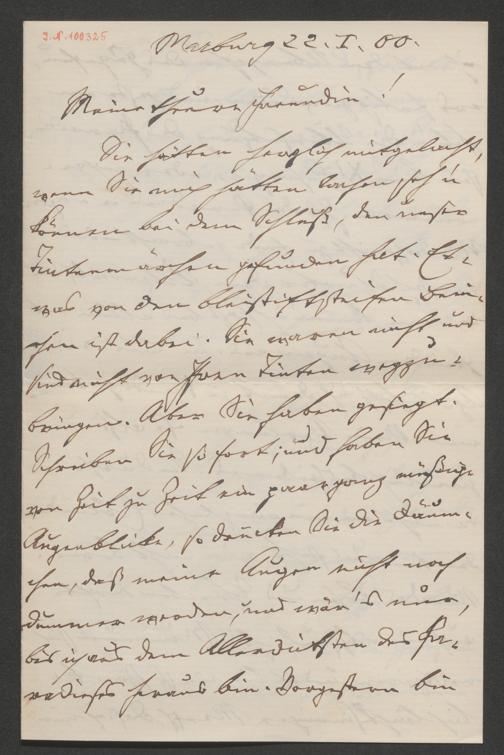 J.N. 100325
Marburg 22. I. 00.
Meine theure Freundin!
Sie hätten herzlich mitgelacht,
wenn Sie mich hätten lachen seh'n
können bei dem Schluß, den unser
Tintenmärchen gefunden hat. Et-
was von den bleistiftsteifen Bein-
chen ist dabei. Sie waren nicht und
sind nicht von Ihren Tinten wegzu-
bringen. Aber Sie haben gesiegt.
Schreiben Sie so fort; und haben Sie
von Zeit zu Zeit ein paar ganz müßige
Augenblicke, so drücken Sie die Däum-
chen, daß meine Augen nicht noch
dümmer werden, und wär's nur,
bis ich aus dem Allerdicksten des
heraus bin. Vorgestern bin